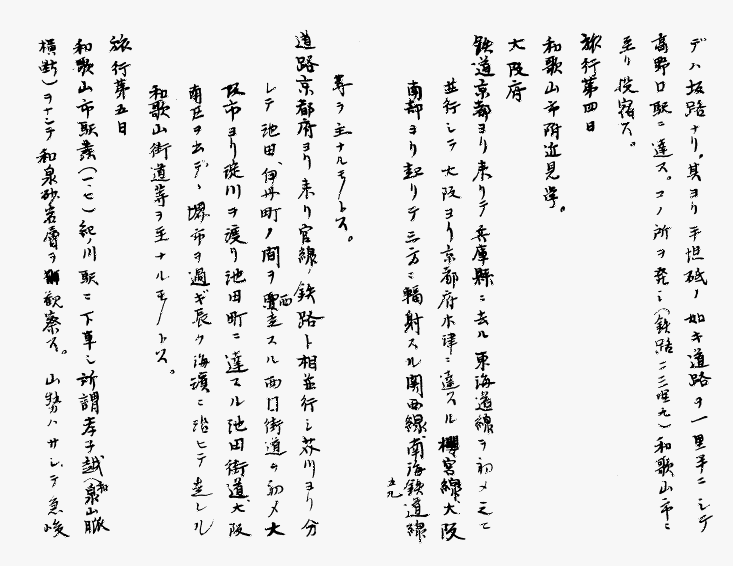 デハ坂路ナリ。其ヨリ平坦砥ノ如キ道路ヲ一里半ニシテ
高野口駅ニ達ス。コノ所ヲ発シ(鉄路二三哩九)和歌山市ニ
至リ投宿ス。
旅行第四日
和歌山市附近見学。
大阪府
鉄道京都ヨリ来リテ兵庫縣ニ去ル東海道線ヲ初メ之ニ
並行シテ大阪ヨリ京都府木津ニ達スル櫻宮線、大阪
南部ヨリ起リテ三方ニ輻射スル関西線、南海鉄道線
等ヲ主ナルモノトス。
道路京都府ヨリ来リ官線ノ鉄路ト相並行シ芥川ヨリ分
レテ池田、伊丹町ノ間ヲ西走スル西国街道ヲ初メ大
阪市ヨリ淀川ヲ渡リ池田町ニ達スル池田街道、大阪
南区ヲ出デ、堺市ヲ過ギ長ク海濱ニ沿ヒテ走レル
和歌山街道等ヲ主ナルモノトス。
旅行第五日
和歌山市駅発(一、七)紀ノ川駅ニ下車シ所謂孝子越(和泉山脈
横断)ヲナシテ和泉砂岩層ヲ観察ス。山勢ハサシテ急峻